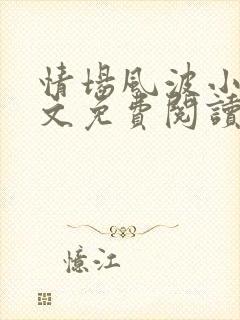 情場風波小
文免費閱讀
憶江